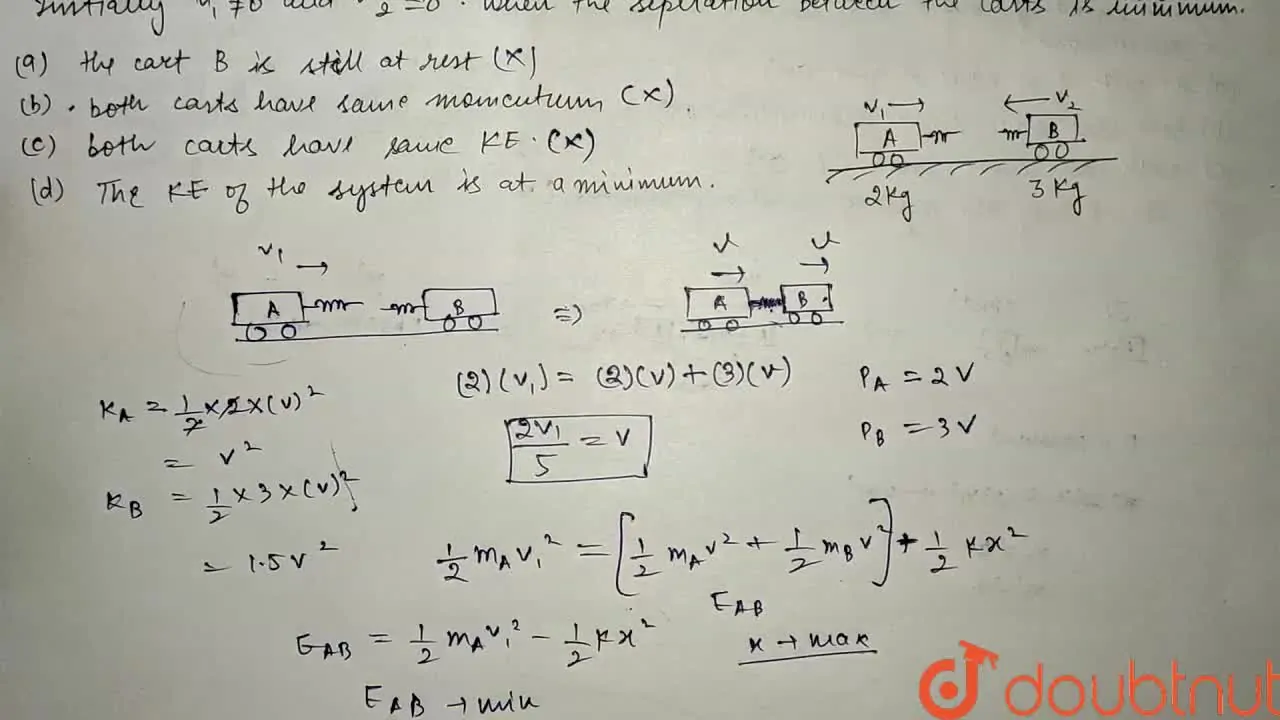 Initially v₁ ≠ 0 and v₂ = 0. When the seperation between the carts is minimum.
(a) the cart B is still at rest (x)
(b) . both carts have same momentum (x).
(c) both carts have same KE. (x)
(d) The KE of the system is at a minimum.
v₁ → ← v₂
A B
2Kg 3Kg
v₁ → v → v →
A B ⇒ A B
(2)(v₁) = (2)(v) + (3)(v)
2v₁/5 = v
P_A = 2V
P_B = 3V
K_A = 1/2 × 2 × (v)²
= v²
K_B = 1/2 × 3 × (v)²
= 1.5v²
1/2 m_A v₁² = [1/2 m_A v² + 1/2 m_B v²] + 1/2 kx²
E_AB
E_AB = 1/2 m_A v₁² - 1/2 kx²
x → max
E_AB → min
doubtnut